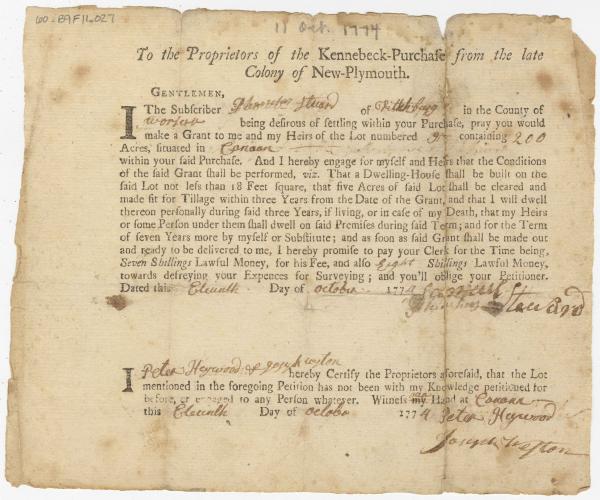 60-B9F16.027
11 Oct. 1774
To the Proprietors of the Kennebeck-Purchase from the late
Colony of New-Plymouth.
GENTLEMEN,
I The Subscriber Stuard of in the County of
worsua being desirous of settling within your Purchase, pray you would
make a Grant to me and my Heirs of the Lot numbered containing 200
Acres, situated in Conaan
within your said Purchase. And I hereby engage for myself and Heirs that the Conditions
of the said Grant shall be performed, viz. That a Dwelling-House shall be built on the
said Lot not less than 18 Feet square, that five Acres of said Lot shall be cleared and
made fit for Tillage within three Years from the Date of the Grant, and that I will dwell
thereon personally during said three Years, if living, or in case of my Death, that my Heirs
or some Person under them shall dwell on said Premises during said Term; and for the Term
of seven Years more by myself or Substitute; and as soon as said Grant shall be made out
and ready to be delivered to me, I hereby promise to pay your Clerk for the Time being,
Seven Shillings Lawful Money, for his Fee, and also Eight Shillings Lawful Money,
towards defreying your Expences for Surveying; and you'll oblige your Petitioner.
Dated this Eleunth Day of october 1774
Steward
I Peter Heywood & Joseph weston
hereby Certify the Proprietors aforesaid, that the Lot
mentioned in the foregoing Petition has not been with my Knowledge petitioned for
before, or engaged to any Person whatever. Witness my Hand at Conaan
this Eleunth Day of octobe 1774 Peter Heywood
Joseph Weston